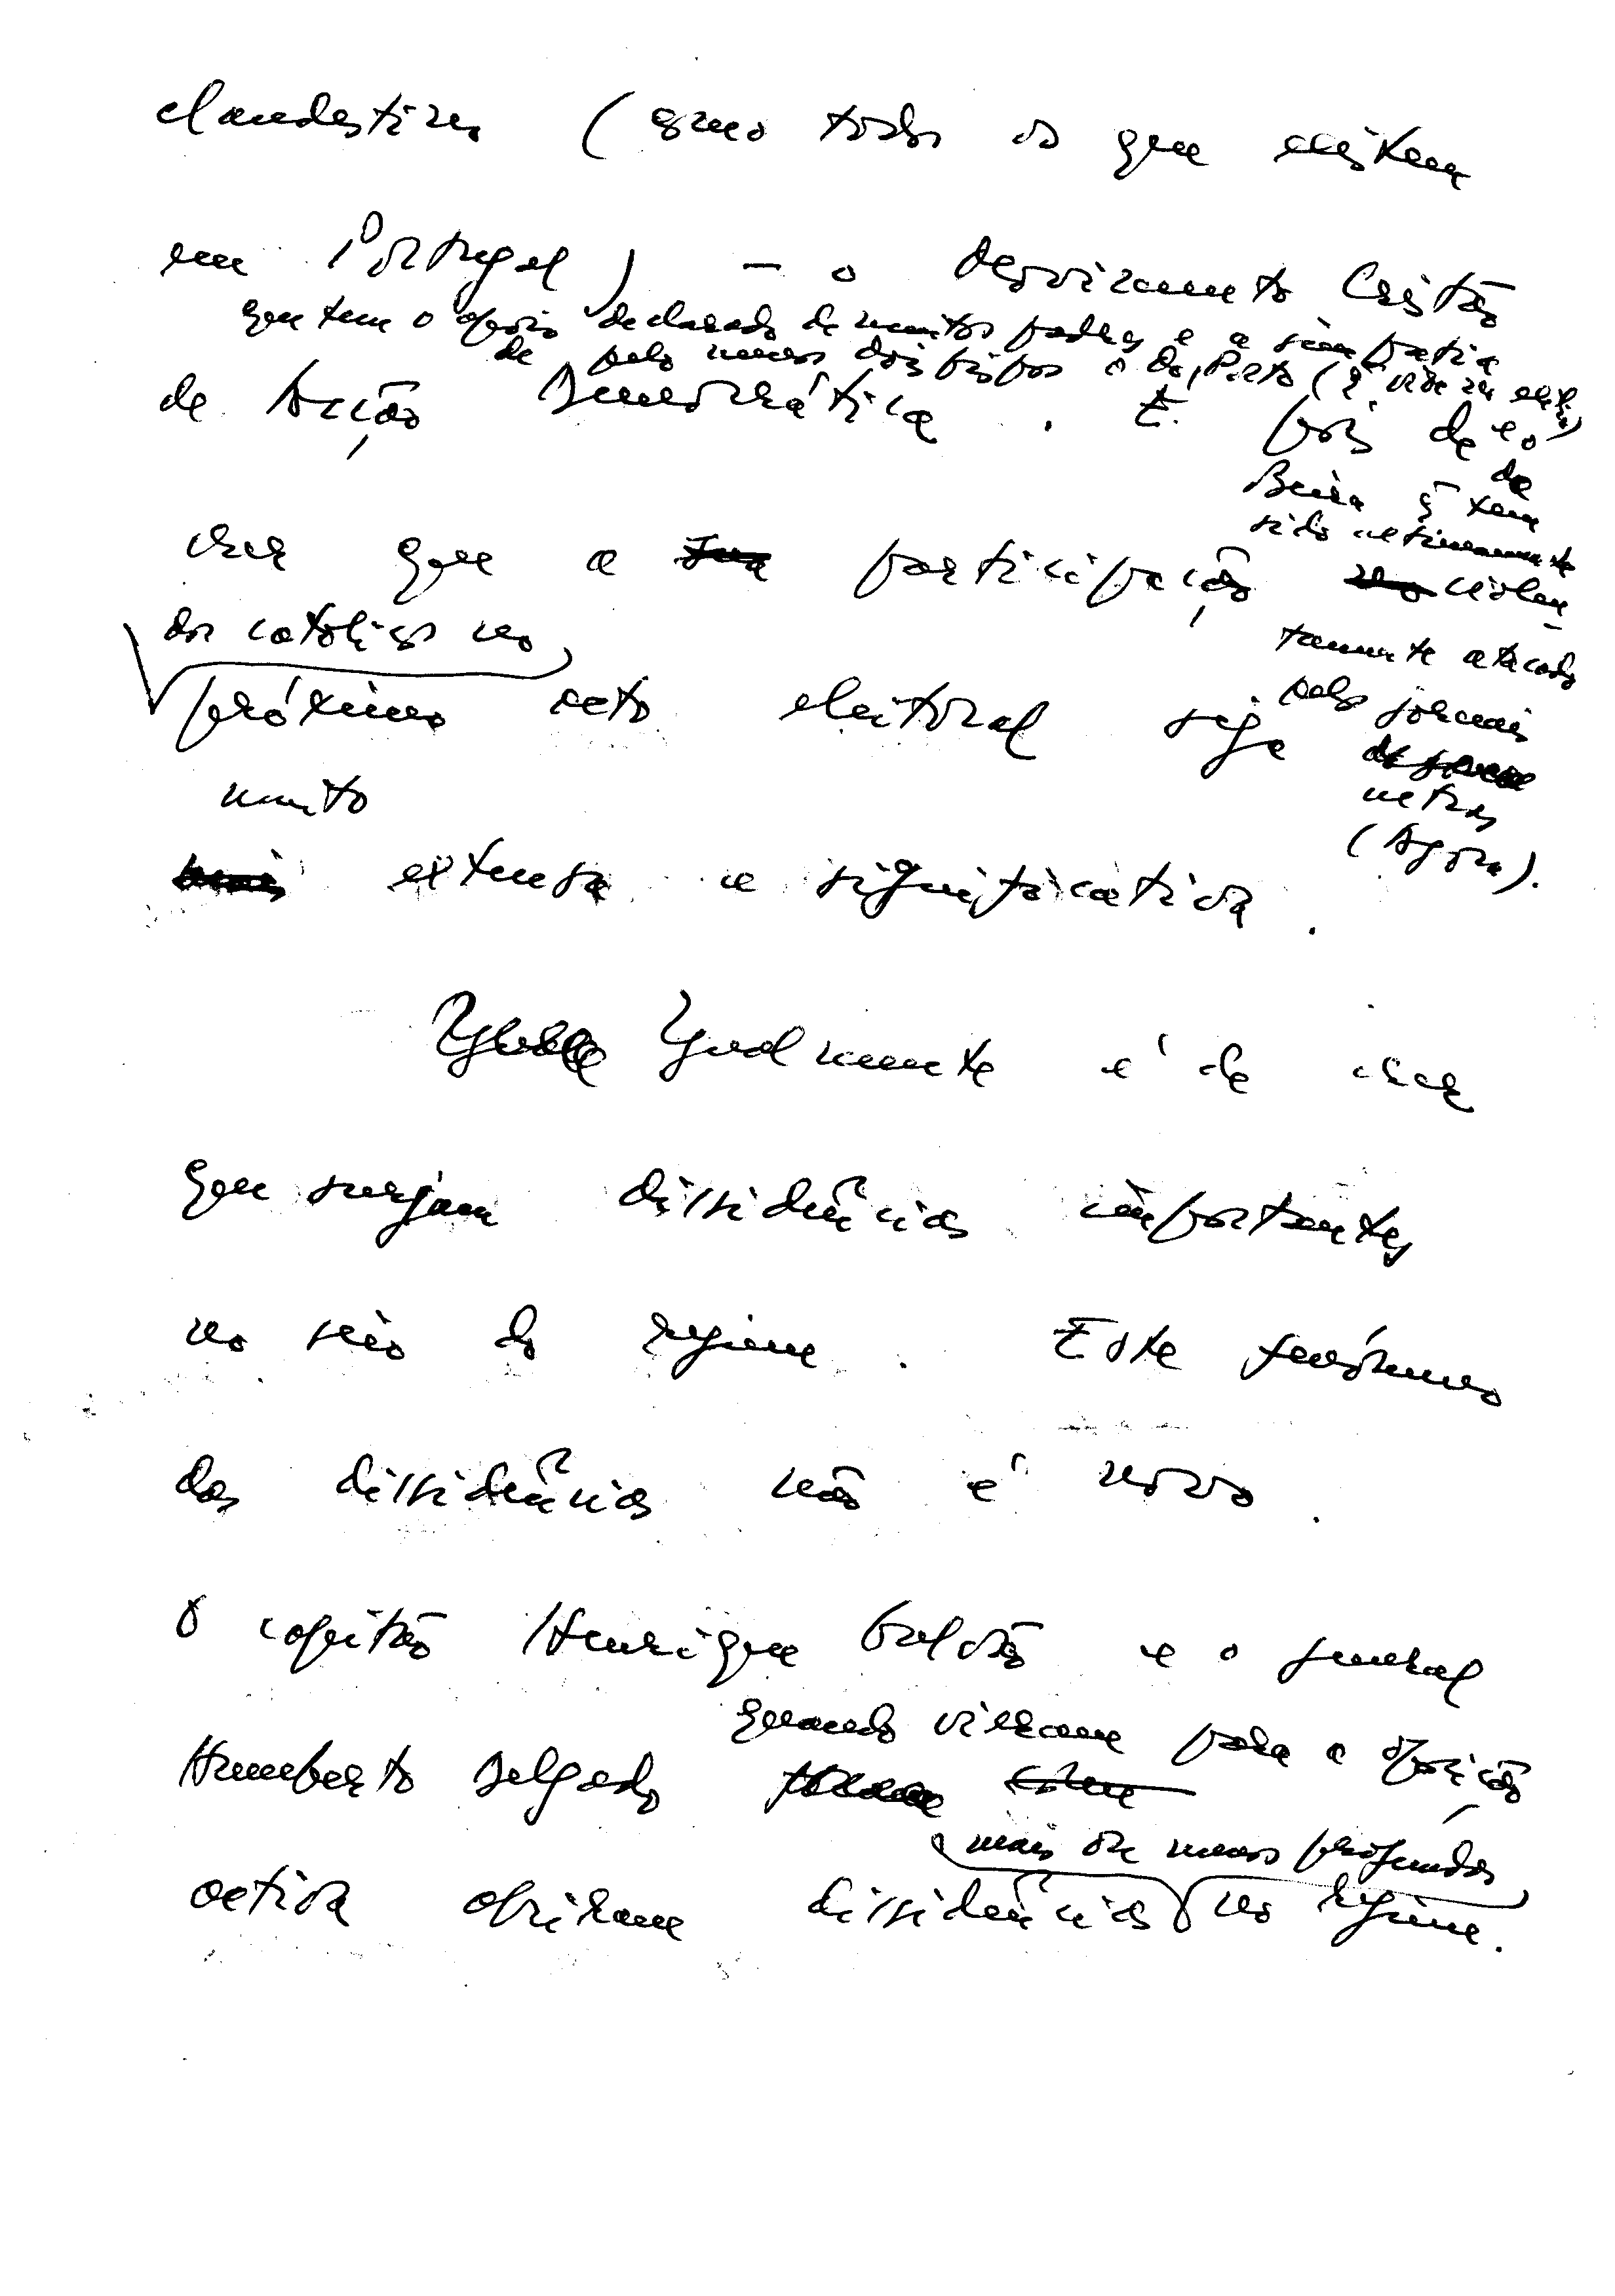 clandestino (como todos os que existem
em Portugal) — o Movimento Cristão
que tem o apoio declarado de muitos padres e a simpatia
de pelo menos dois bispos o do Porto (q̃ vive no exílio)
de Acção Democrática. É pois de
e o
da
Beira q̃ tem
sido ultimamente
crer que a sua participação no violen-
dos católicos no
tamente atacado
próximo acto eleitoral seja
pelos jornais
muito
ultras
(Agora).
mais extensa e significativa.
Igualmente é de crer
que surjam dissidências importantes
no seio do regime. Este fenómeno
das dissidências não é novo.
O capitão Henrique Galvão e o general
quando vieram para a oposição
Humberto Delgado
mais ou menos profundas
activa abriram dissidências no regime.